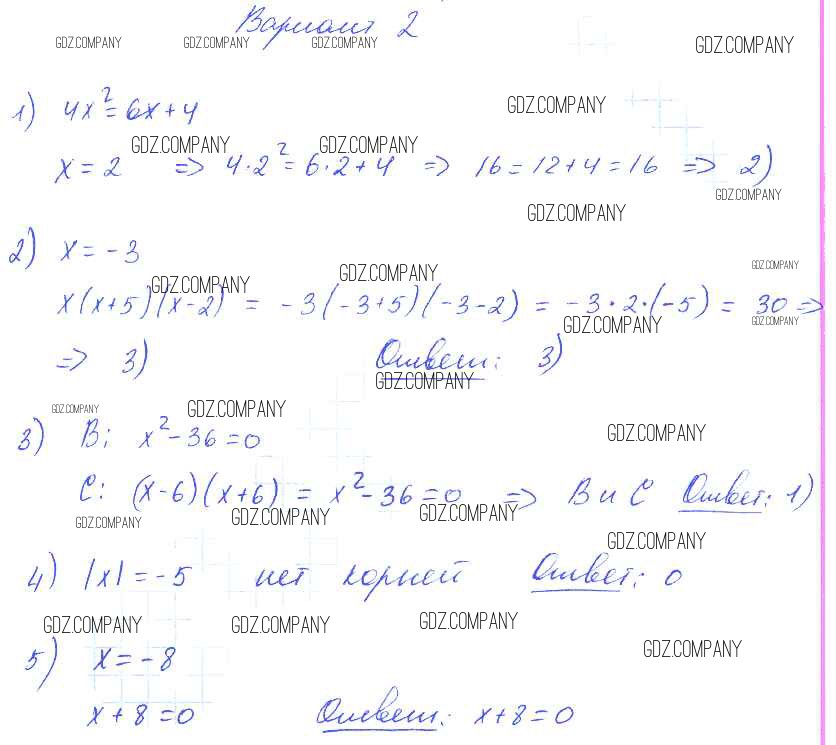 Вариант 2
GDZ.COMPANY GDZ.COMPANY GDZ.COMPANY GDZ.COMPANY
1) 4x² = 6x + 4
GDZ.COMPANY
GDZ.COMPANY GDZ.COMPANY
x = 2 => 4·2² = 6·2 + 4 => 16 = 12 + 4 = 16 => 2)
GDZ.COMPANY
GDZ.COMPANY
2) x = -3
GDZ.COMPANY GDZ.COMPANY GDZ.COMPANY
x(x+5)(x-2) = -3(-3+5)(-3-2) = -3·2·(-5) = 30 =>
GDZ.COMPANY GDZ.COMPANY
=> 3) Ответ: 3)
GDZ.COMPANY
GDZ.COMPANY GDZ.COMPANY
3) B: x² - 36 = 0
GDZ.COMPANY
C: (x-6)(x+6) = x² - 36 = 0 => B и C Ответ: 1)
GDZ.COMPANY GDZ.COMPANY GDZ.COMPANY
GDZ.COMPANY
4) |x| = -5 нет корней Ответ: 0
GDZ.COMPANY GDZ.COMPANY GDZ.COMPANY
GDZ.COMPANY
5) x = -8
x + 8 = 0 Ответ: x + 8 = 0